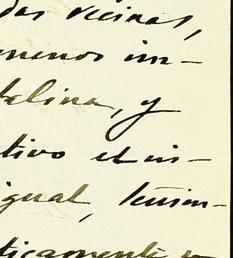 das vecinas,
menos im-
talina, y
tivo el in-
igual,
ticamente